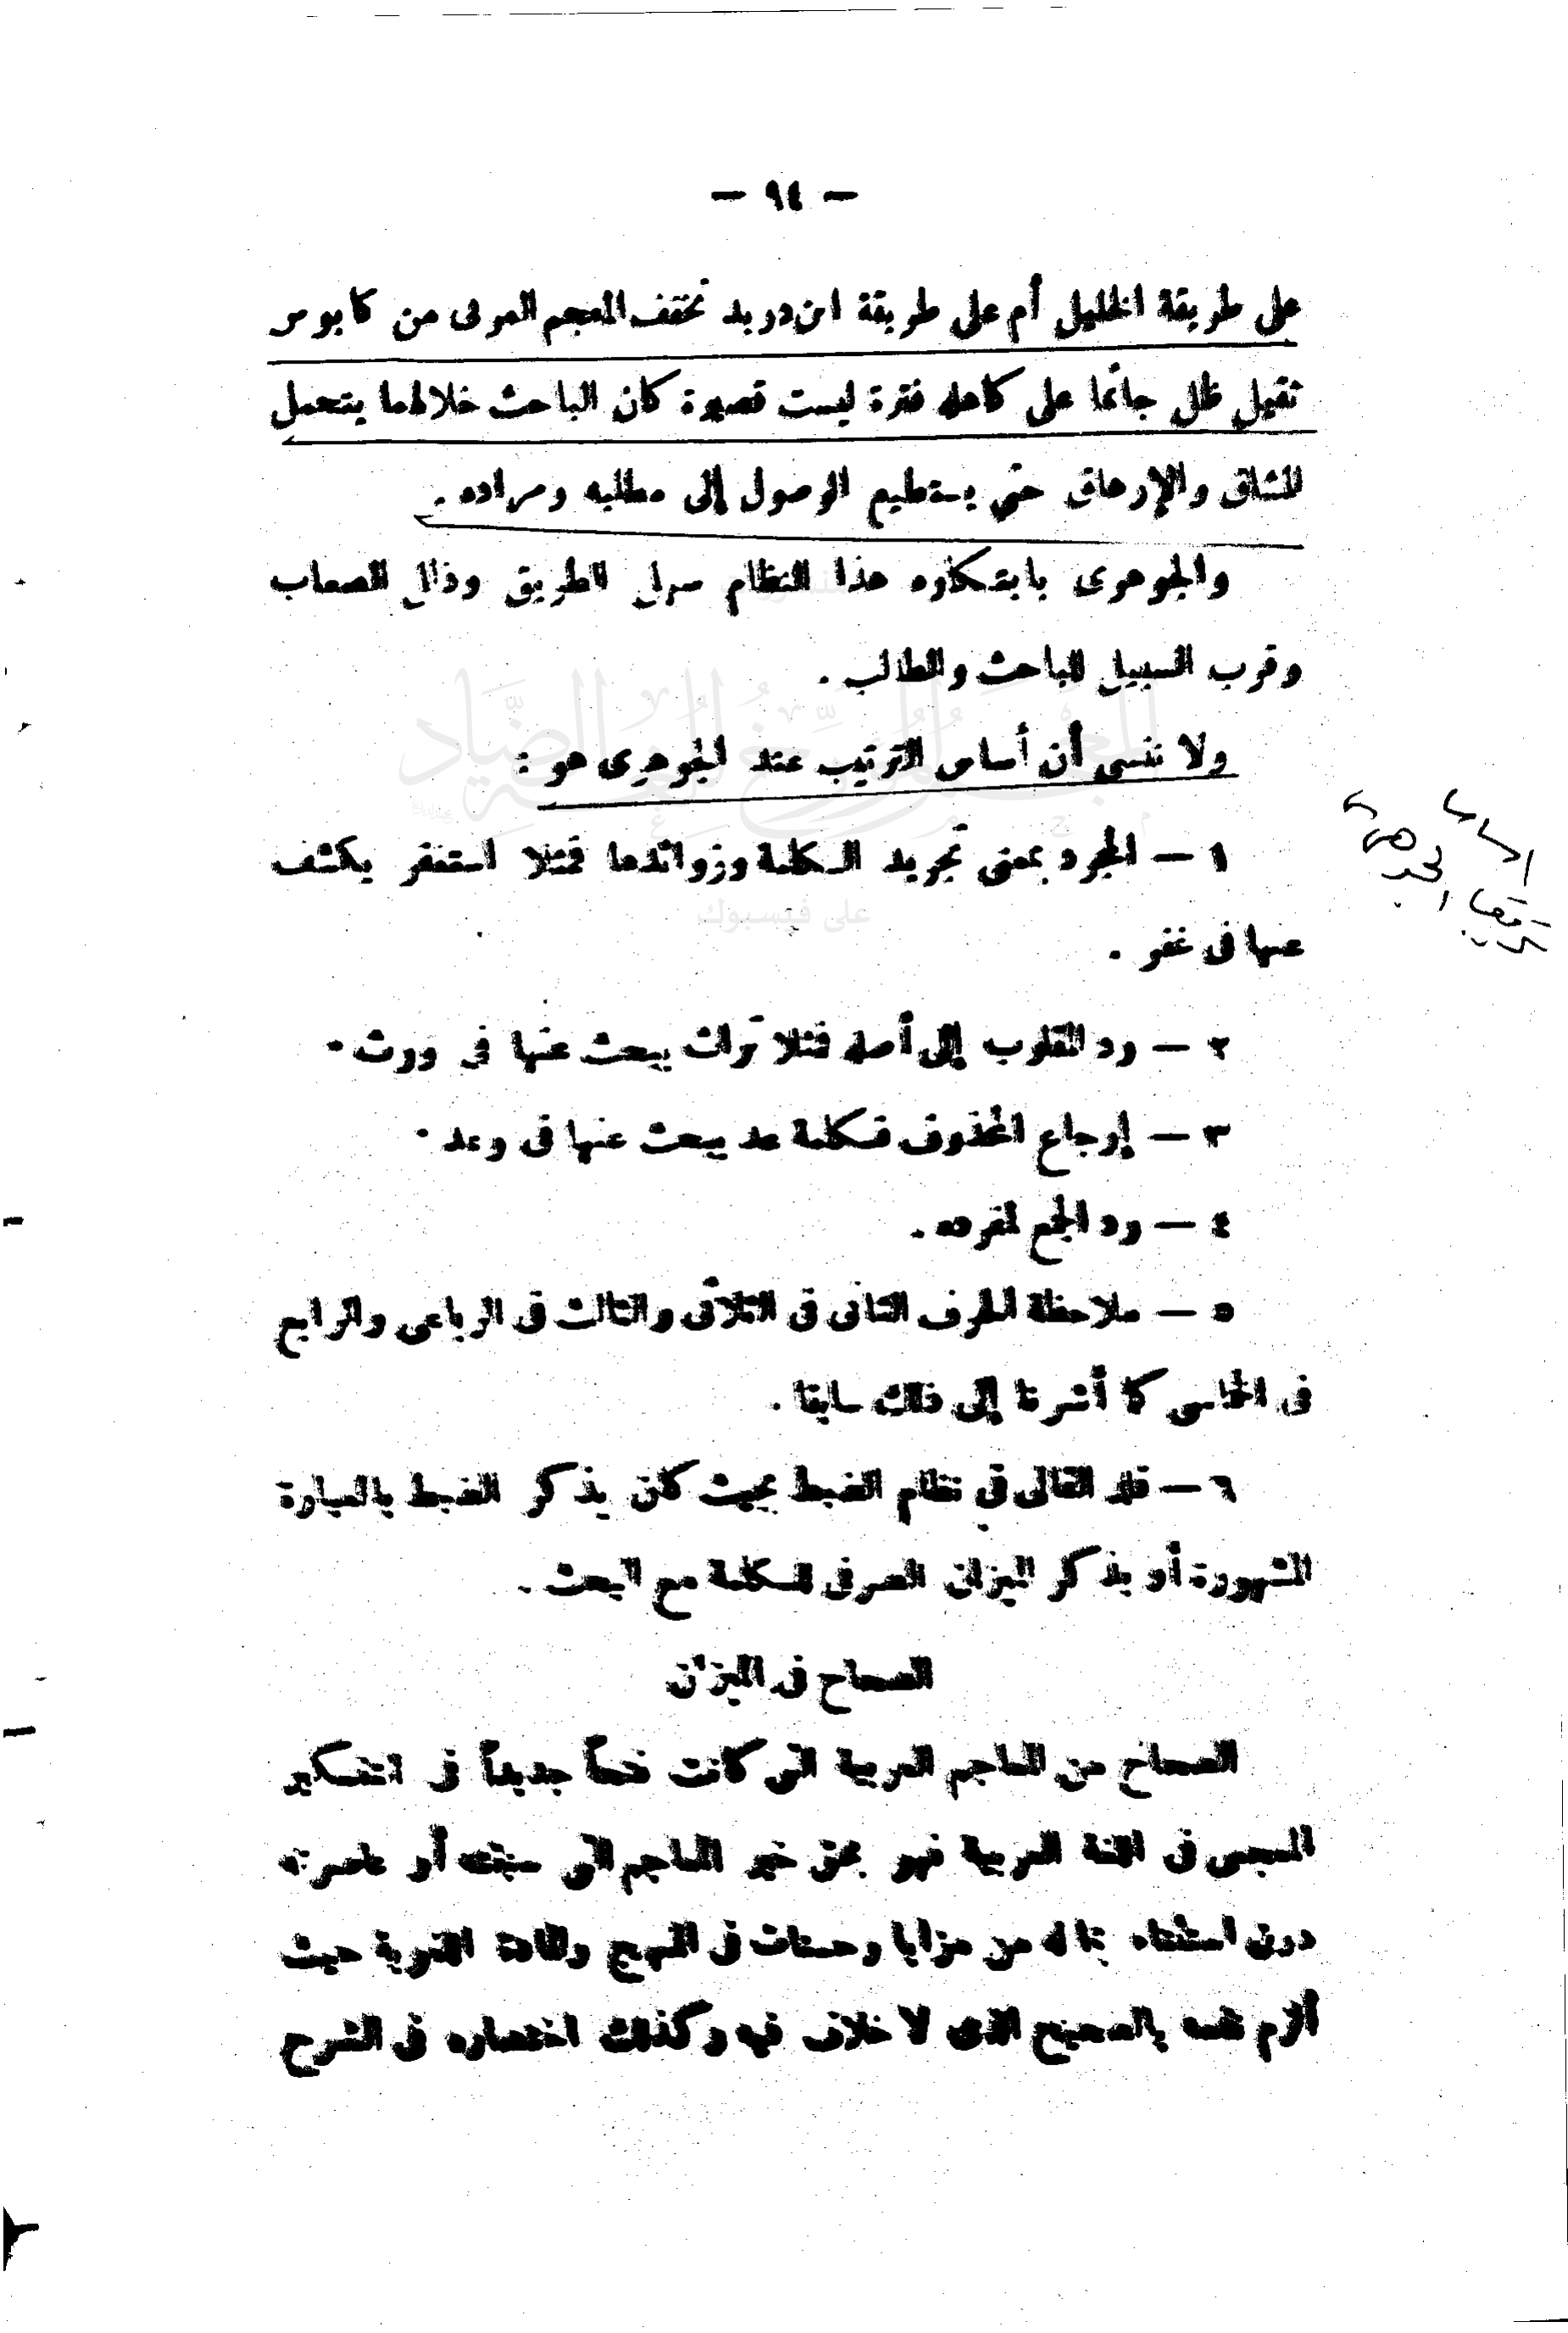 — ٩٤ —
على طريقة الخليل أم على طريقة ابن دريد تخفف المعجم العربى من كابوس
ثقيل ظل جاثما على كاهله فترة ليست قصيرة كان الباحث خلالها يتحمل
المشاق والإرهاق حتى يستطيع الوصول إلى مطلبه ومراده .
والجوهرى بابتكاره هذا النظام سهل الطريق وذلل الصعاب
وقرب السبيل للباحث والطالب .
ولا ننسى أن أساس الترتيب عند الجوهرى هو :
١ — المجرد بمعنى تجريد الكلمة وزوائدها فمثلا استغفر يكشف
عنها فى غفر .
٢ — رد المقلوب إلى أصله فمثلا تراث يبحث عنها فى ورث .
٣ — إرجاع المحذوف فكلمة عد يبحث عنها فى وعد .
٤ — رد الجمع لمفرده .
٥ — ملاحظة الحرف الثانى فى الثلاثى والثالث فى الرباعى والرابع
فى الخماسى كما أشرنا إلى ذلك سابقا .
٦ — قلد القالى فى نظام الضبط بحيث كان يذكر الضبط بالعبارة
المشهورة أو بذكر الميزان الصرفى للكلمة مع البحث .
الصحاح فى الميزان
الصحاح من المعاجم العربية التى كانت فتحاً جديداً فى التفكير
المعجمى فى اللغة العربية فهو بحق خير المعاجم التى سبقته أو عاصرته
دون استثناء بما له من مزايا وحسنات فى المنهج والمادة اللغوية حيث
ألزم نفسه بالصحيح الذى لا خلاف فيه وكذلك اختصاره فى الشرح
المجمل المؤرخ للغة الضاد
على فيسبوك